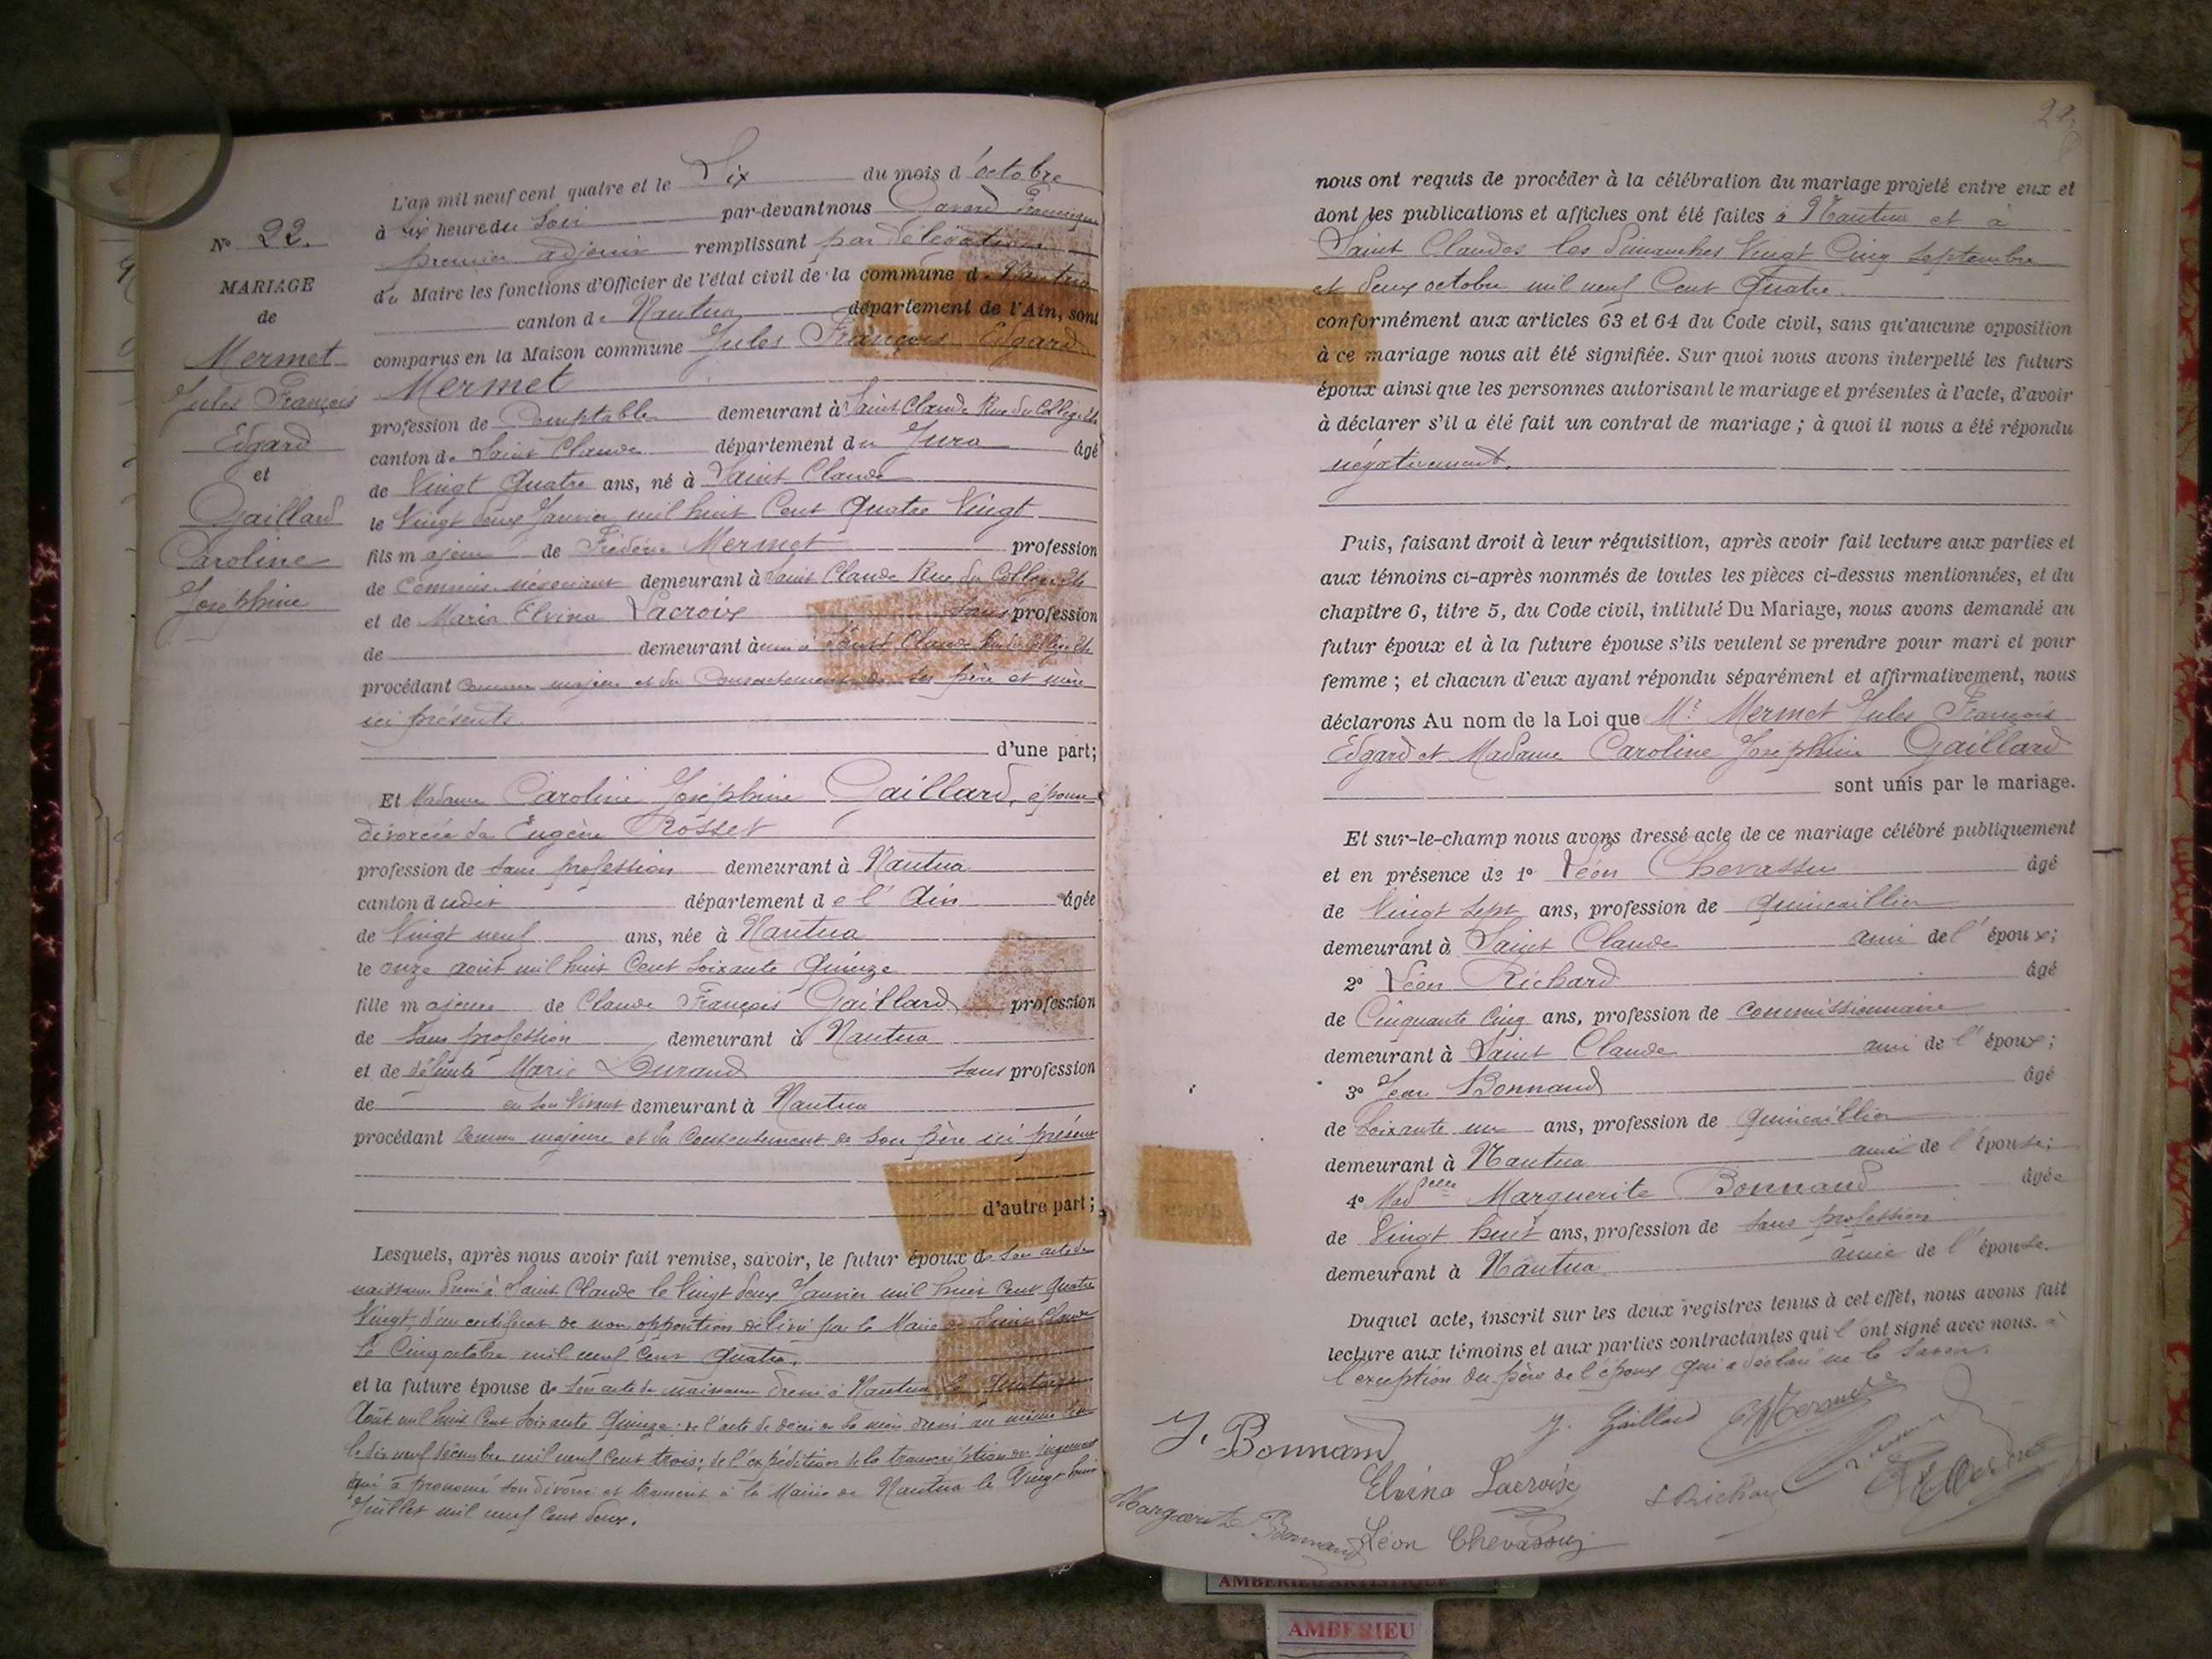 L'an mil neuf cent quatre et le Six du mois d'octobre
à six heure du soir par-devant nous Gavard Francisque
premier adjoint remplissant par délégation
du Maire les fonctions d'Officier de l'état civil de la commune de Nantua
canton de Nantua département de l'Ain, sont
comparus en la Maison commune Jules François Edgard
Mermet
profession de Comptable demeurant à Saint Claude Rue du Collège
canton de Saint Claude département du Jura âgé
de Vingt Quatre ans, né à Saint Claude
le Vingt deux Janvier mil huit Cent Quatre Vingt
fils majeur de Frédéric Mermet profession
de Commis négociant demeurant à Saint Claude Rue du Collège
et de Marie Elvina Lacroix sans profession
de demeurant à Saint Claude Rue du Collège
procédant comme majeur et du Consentement de ses père et mère
ici présents
d'une part;
Et Madame Caroline Joséphine Gaillard, épouse
divorcée de Eugène Rosset
profession de sans profession demeurant à Nantua
canton dudit département de l'Ain âgée
de Vingt neuf ans, née à Nantua
le onze août mil huit Cent Soixante Quinze
fille majeure de Claude François Gaillard profession
de sans profession demeurant à Nantua
et de défunte Marie Durand sans profession
de en son Vivant demeurant à Nantua
procédant comme majeure et du Consentement de son père ici présent
d'autre part;
Lesquels, après nous avoir fait remise, savoir, le futur époux de son acte de
naissance dressé à Saint Claude le Vingt deux Janvier mil huit Cent Quatre
Vingt, d'un certificat de non opposition délivré par le Maire de Saint Claude
le Cinq octobre mil neuf Cent Quatre.
et la future épouse de son acte de naissance dressé à Nantua le
Août mil huit Cent Soixante Quinze; de l'acte de décès de sa mère dressé au même lieu
le dix neuf décembre mil neuf Cent trois; de l'expédition de la transcription du jugement
qui a prononcé son divorce et transcrit à la Mairie de Nantua le Vingt huit
Juillet mil neuf Cent deux.
N° 22.
MARIAGE
de
Mermet
Jules François
Edgard
et
Gaillard
Caroline
Joséphine
nous ont requis de procéder à la célébration du mariage projeté entre eux et
dont les publications et affiches ont été faites à Nantua et à
Saint Claudes les Dimanches Vingt Cinq Septembre
et deux octobre mil neuf Cent Quatre
conformément aux articles 63 et 64 du Code civil, sans qu'aucune opposition
à ce mariage nous ait été signifiée. Sur quoi nous avons interpellé les futurs
époux ainsi que les personnes autorisant le mariage et présentes à l'acte, d'avoir
à déclarer s'il a été fait un contrat de mariage; à quoi il nous a été répondu
négativement.
Puis, faisant droit à leur réquisition, après avoir fait lecture aux parties et
aux témoins ci-après nommés de toutes les pièces ci-dessus mentionnées, et du
chapitre 6, titre 5, du Code civil, intitulé Du Mariage, nous avons demandé au
futur époux et à la future épouse s'ils veulent se prendre pour mari et pour
femme; et chacun d'eux ayant répondu séparément et affirmativement, nous
déclarons Au nom de la Loi que Mr Mermet Jules François
Edgard et Madame Caroline Joséphine Gaillard
sont unis par le mariage.
Et sur-le-champ nous avons dressé acte de ce mariage célébré publiquement
et en présence de 1° Léon Chevassu âgé
de Vingt Sept ans, profession de quincaillier
demeurant à Saint Claude ami de l'époux;
2° Léon Richard âgé
de Cinquante Cinq ans, profession de commissionnaire
demeurant à Saint Claude ami de l'époux;
3° Jean Bonnand âgé
de Soixante un ans, profession de Quincaillier
demeurant à Nantua ami de l'épouse;
4° Madelle Marguerite Bonnand âgée
de Vingt huit ans, profession de sans profession
demeurant à Nantua amie de l'épouse.
Duquel acte, inscrit sur les deux registres tenus à cet effet, nous avons fait
lecture aux témoins et aux parties contractantes qui l'ont signé avec nous. à
l'exception du père de l'époux qui a déclaré ne le savoir.
J. Gaillard
J. Bonnand
Elvina Lacroix
L Richard
Marguerite Bonnand
Léon Chevassu
AMBERIEU ARTISTIQUE
AMBERIEU